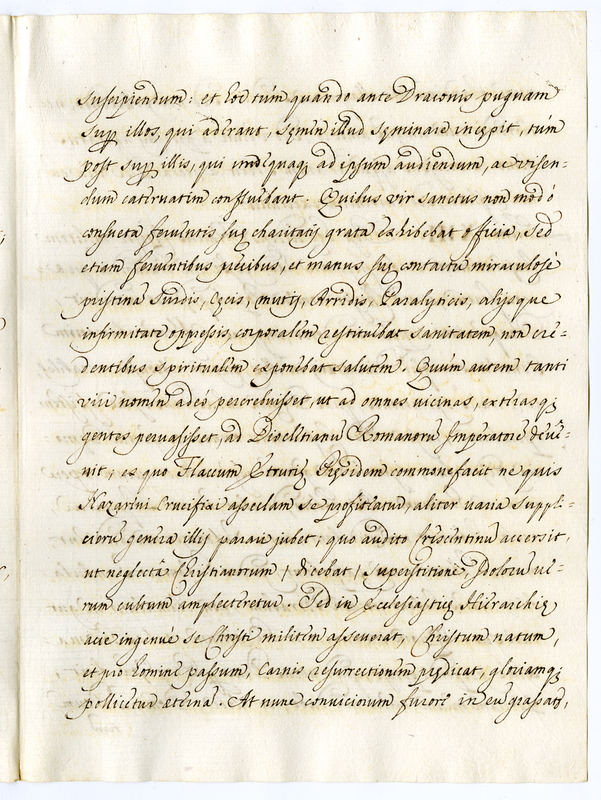 suscipiendum: et hoc túm quando ante Draconis pugnam
sup̱ illos, qui aderant, sęmen illud sęminare incępit, túm
post sup̱ illis, qui undequaq; ad ipsum audiendum, ac visen-
dum catervatim confluebant. Quibus vir sanctus non modó
consueta feruentis suę charitatis grata exhibebat officia, sed
etiam feruentibus precibus, et manus suę contactu miraculosé
pristinã surdis, cęcis, mutis, Arridis, Paralyticis, alijsque
infirmitate oppressis, corporalem restituebat sanitatem, non cre-
dentibus spiritualem exponebat salutem. Quum autem tanti
viri nomen adeó percrebuisset, ut ad omnes vicinas, exterasq;
gentes peruasisset, ad Diocletianũ Romanorũ Imperatorẽ deuẽ-
nit; ex quo Flaccum Etrurię Pręsidem commonefacit ne quis
Nazareni Crucifixi asseclam se profiteatur, aliter varia suppli-
ciorũ genera illis parari jubet; quo audito Crescentinũ accersit,
ut neglectâ Christianorum / dicebat / superstitione, Idolorũ ue-
rum cultum amplecteretur. Sed in Ecclesiasticę Hierarchię
acie ingenué se Christi militem asseverat, Christum natum,
et pro homine passum, Carnis resurrectionem prędicat, gloriamq;
pollicetur æternã. At nunc conviciorum furore in eũ grassatɉ,